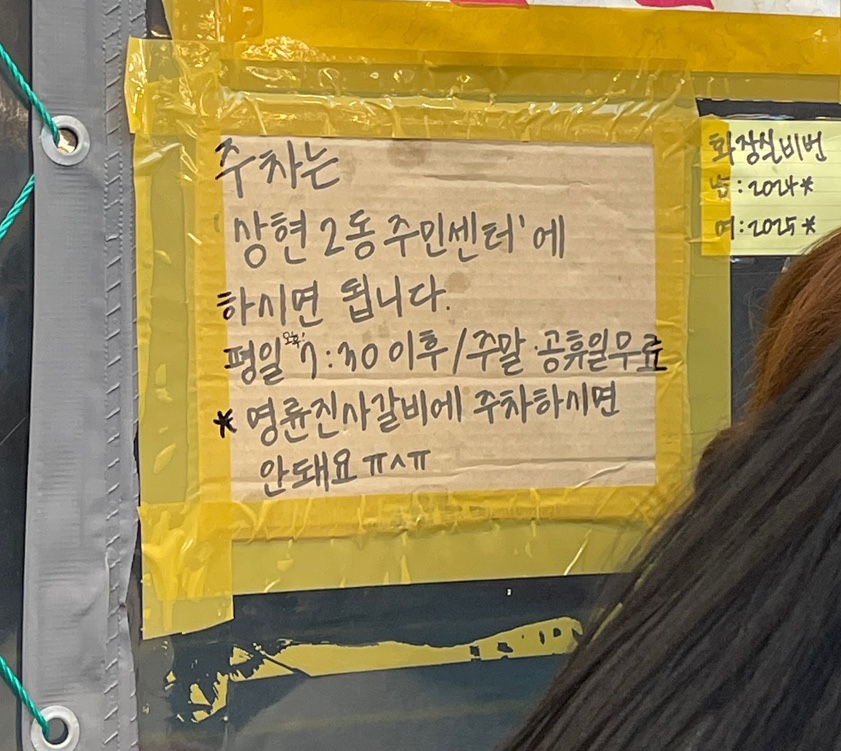 주차는
상현2동 주민센터'에
하시면 됩니다.
평일 오후 7:30 이후/주말·공휴일무료
* 명륜진사갈비에 주차하시면
안돼요 ㅠㅅㅠ
화장실비번
남:2024*
여:2025*